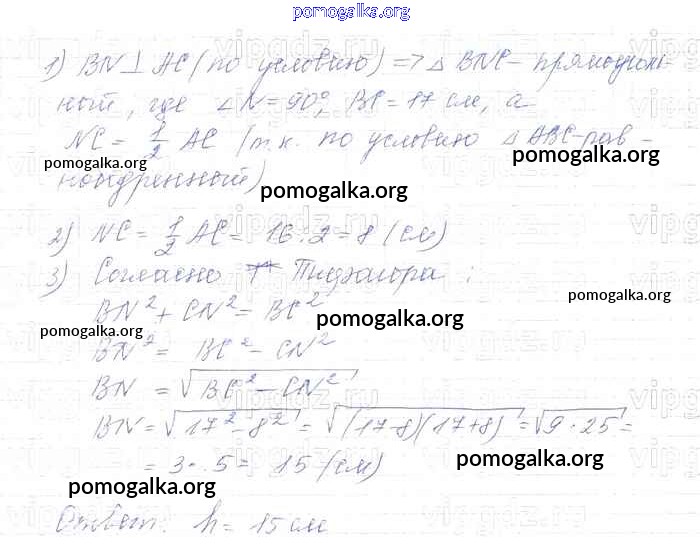 pomogalka.org
1) BN ⊥ AC (по условию) => △ BNC - прямоуголь-
ный, где ∠N = 90°, BC = 17 см, а
NC = 1/2 AC (т.к. по условию △ ABC - рав-
pomogalka.org
pomogalka.org
нобедренный)
pomogalka.org
2) NC = 1/2 AC = 16 : 2 = 8 (см)
3) Согласно Т Пифагора :
pomogalka.org
BN² + CN² = BC²
pomogalka.org
pomogalka.org
BN² = BC² - CN²
BN = √(BC² - CN²)
BN = √(17² - 8²) = √((17-8)(17+8)) = √(9 · 25) =
= 3 · 5 = 15 (см)
pomogalka.org
pomogalka.org
Ответ: h = 15 см